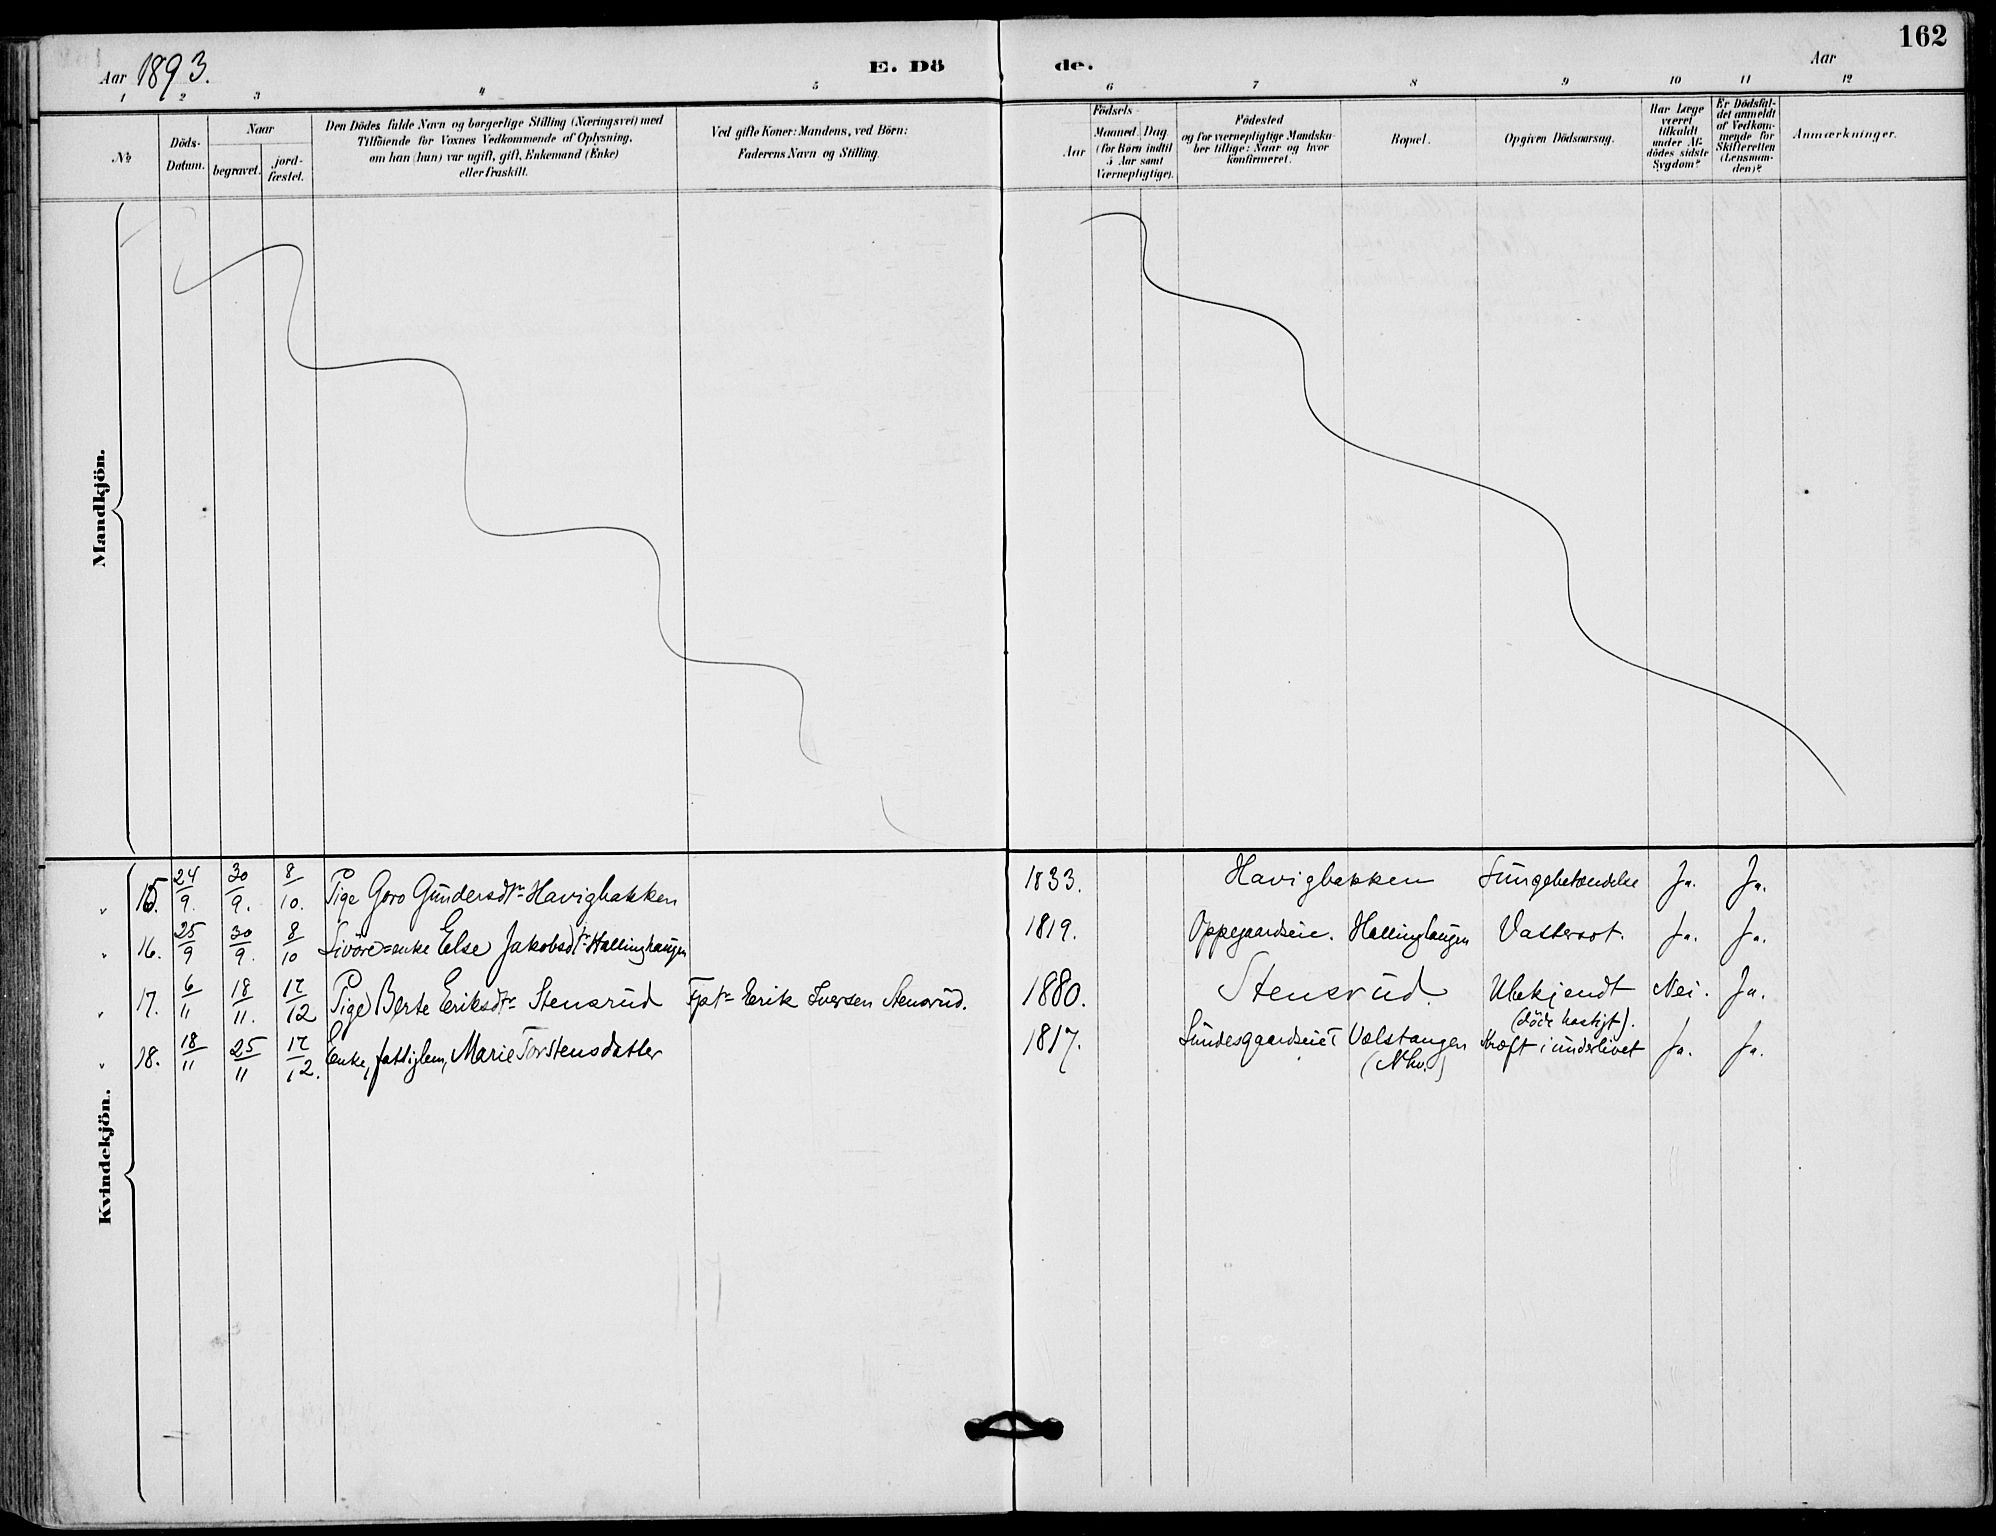 162
Aar 1893. E. Dö de. Aar
1 2 3 4 5 6 7 8 9 10 11 12
№
Döds-
Datum.
Naar
begravet.
jord-
fæstet.
Den Dödes fulde Navn og borgerlige Stilling (Næringsvei) med
Tilföiende for Voxnes Vedkommende af Oplysning,
om han (hun) var ugift, gift, Enkemand (Enke)
eller fraskilt.
Ved gifte Koner: Mandens, ved Börn:
Faderens Navn og Stilling.
Födsels-
Aar
Maaned. Dag
(for Börn indtil
5 Aar samt
Værnepligtige).
Födested
og for værnepligtige Mandska-
ber tillige: Naar og hvor
konfirmeret.
Bopæl.
Opgiven Dödsaarsag.
Har Læge
været
tilkaldt
under Af-
dödes sidste
Sygdom?
Er Dödsfal-
det anmeldt
af Vedkom-
mende for
Skifteretten
(Lensman-
den)?
Anmærkninger.
Mandkjön.
Kvindekjön.
" 15. 24/9. 30/9. 8/10. Pige Goro Gundersdtr Havigbakken 1833. Havigbakken Lungebetændelse Ja. Ja.
" 16. 25/9 30/9. 8/10 Livöre=enke Else Jakobsdtr Hallinghaugen 1819. Oppegaardseie. Hallinghaugen Vattersot. Ja. Ja.
" 17. 6/11 18/11. 17/12 Pige Berte Eriksdtr Stensrud Erik Iversen Stensrud. 1880. Stensrud Ubekjendt Nei. Ja.
(döde hastigt).
" 18. 18/11 25/11 17/12. Enke, fattiglem, Marie Torstensdatter 1817. Sundesgaardseiet Volstangen Kræft i underlivet Ja. Ja.
(Nkv.)